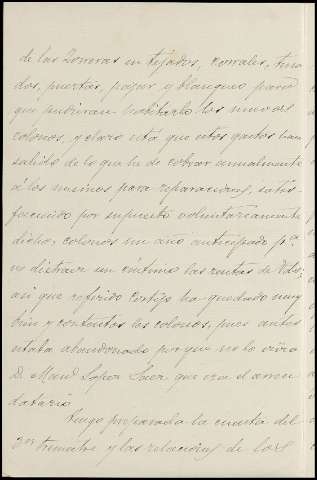 de las Zorreras en tejados, corrales, tina
dos, puertas, pajar y blanqueo para
que pudieran habitarlo los nuevos
colonos, y claro está que estos gastos han
salido de lo que he de cobrar anualmente
á los mismos para reparaciones, satis-
faciendo por supuesto voluntariamente
dichos colonos un año anticipado pa.
no distraer un céntimo las rentas de Vds;
asi que referido Cortijo ha quedado muy
bien y contentos los colonos, pues antes
estaba abandonado porque no lo vivia
D. Manl. Lopez Saez que era el arren
datario
Tengo preparada la cuenta del
2º trimestre y las relaciones de los